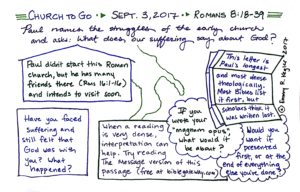 CHURCH TO GO • SEPT. 3, 2017 • ROMANS 8:18-39
Paul names the struggles of the early church
and asks: What does our suffering say about God?
Paul didn't start this Roman
church, but he has many
friends there (Rms 16:1-16)
and intends to visit soon.
This letter is
Paul's longest
and most dense
theologically.
Most Bibles list
it first, but
scholars think it
was written last.
Have you faced
suffering and
still felt that
God was with
you? What
happened?
When a reading
is very dense,
interpretation can
help. Try reading
The Message version of this
passage (free at biblegateway.com)
If you
wrote your
"magnum opus",
what would
it be about?
Would you
want it
presented
first, or at the
end of everything
else you've done?
2017